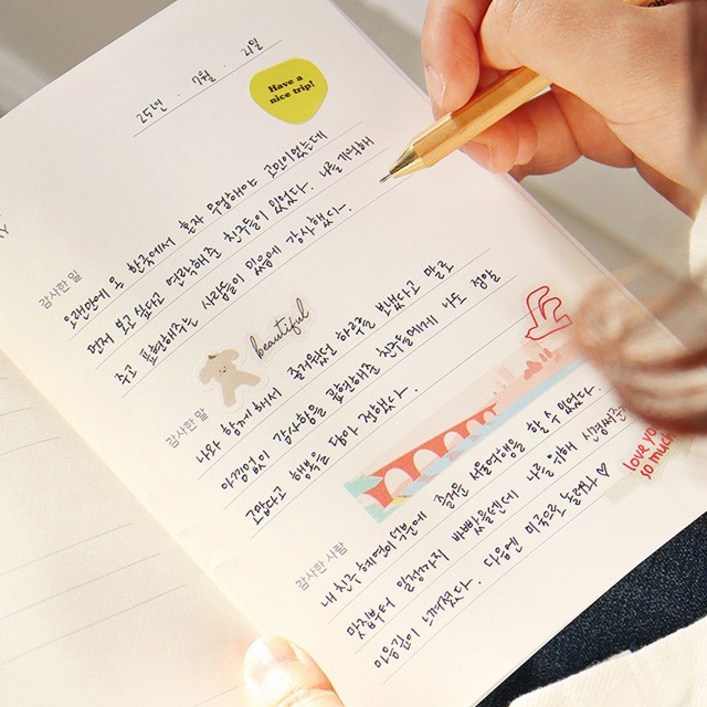 25년 . 7월 . 21일
Have a
nice trip!
감사한 일
오랜만에 온 한국에서 혼자 무얼해야 고민이었는데
먼저 보고 싶다고 연락해준 친구들이 있었다. 나를 기억해
주고 표현해주는 사람들이 있음에 감사했다.
beautiful
감사한 말
나와 함께 해서 즐거웠던 하루를 보냈다고 말로
아낌없이 감사함을 표현해준 친구들에게 나도 정말
고맙다고 행복을 담아 전했다.
감사한 사람
내 친구 혜영이 덕분에 즐거운 서울여행을 할 수 있었다.
맛집부터 일정까지 바빴을텐데 나를 위해 신경써준
마음깊이 느껴졌다. 다음엔 미국으로 놀러와 ♡
love you
so much